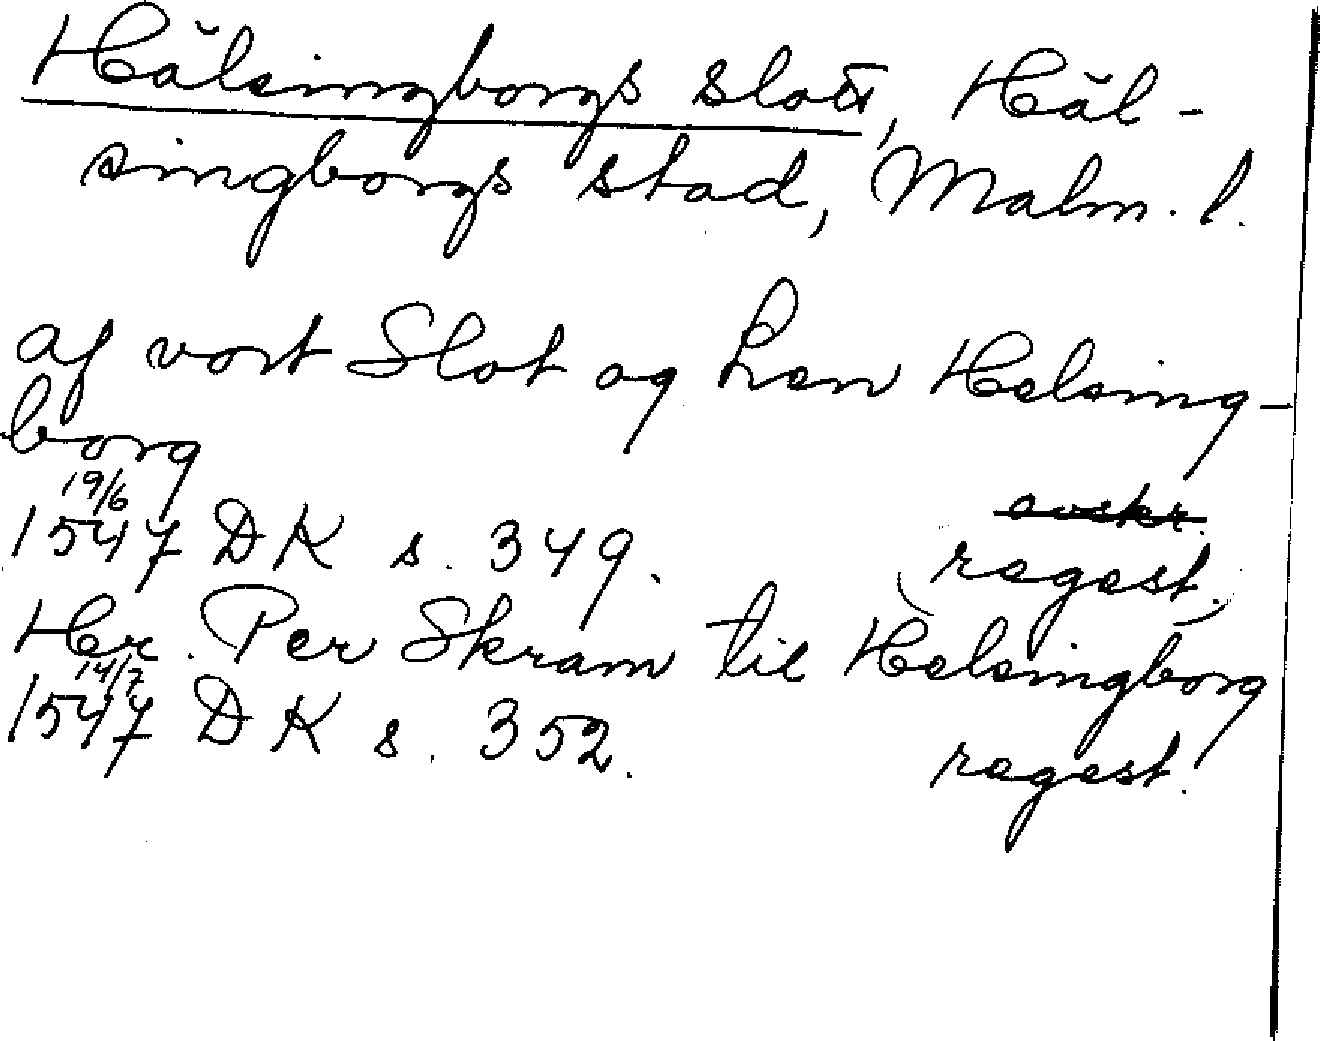 Hälsingborgs slott, Häl-
singborgs stad, Malm. l.
af vort Slot og Len Helsing-
borg
19/6
1547 DK s. 349. avskr.
(regest.)
Her. Per Skram til Helsingborg
14/7
1547 DK s. 352. regest.